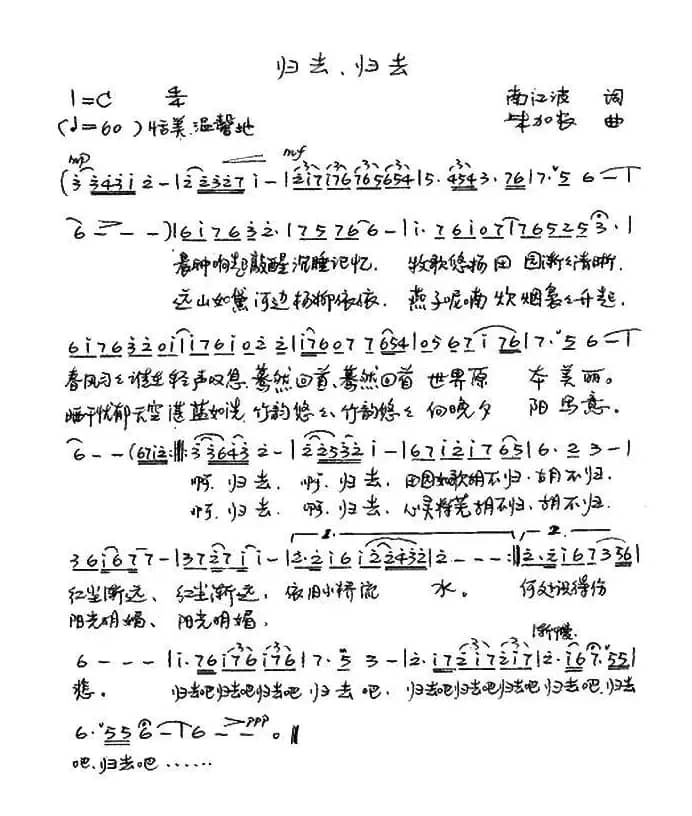 归去、归去
1=C 4/4 南江波 词
(♩=60) 恬美.温馨地 曲
mp mf
(3 3 4 3 1 2 - | 2 2 3 2 7 1 - | 2 1 7 1 7 6 7 6 5 6 5 4 | 5. 4 5 4 3. 7 6 | 7. 5 6 -
6 - - -) | 6 1 7 6 3 2. | 7 5 7 6 6 - | 1. 7 6 1 0 7 | 1 7 6 5 2 5 3. |
晨钟响起敲醒沉睡记忆. 牧歌悠扬田园渐渐清晰.
远山如黛河边杨柳依依. 燕子呢喃炊烟袅袅升起.
6 1 7 6 3 2 0 1 | 1 1 7 6 1 0 2 2 | 1 7 6 0 7 7 6 5 4 | 0 5 6 7 1 7 6 | 7. 5 6 -
春风习习谁在轻声叹息.蓦然回首、蓦然回首 世界原本美丽。
晒干忧郁天空湛蓝如洗.竹韵悠悠、竹韵悠悠 向晚夕阳写意。
6 - - (6 7 1 2 :‖: 3 3 6 4 3 2 - | 2 2 5 3 2 1 - | 6 7 1 2 1 7 6 5 | 6. 2 3 - |
啊.归去. 啊.归去. 田园如歌胡不归.胡不归.
啊.归去. 啊.归去. 心灵将芜胡不归.胡不归.
1. 2.
3 6 1 6 7 7 - | 3 7 2 7 1 1 - | 2. 2 1 6 1 2 2 4 3 2 | 2 - - - :‖ 2. 2 1 6 7 3 5 6 |
红尘渐远、红尘渐远, 依旧小桥流水。 何处没得伤
阳光明媚、阳光明媚,
渐慢.
6 - - - | 1. 7 6 1 7 6 1 7 6 | 7. 5 3 - | 2. 1 7 2 1 7 2 1 7 | 2. 1 6 7. 5 5 |
悲。 归去吧归去吧归去吧.归去吧. 归去吧归去吧归去吧归去吧.归去
6. 5 5 6 - 6 - - 。 ‖ ppp
吧、归去吧……